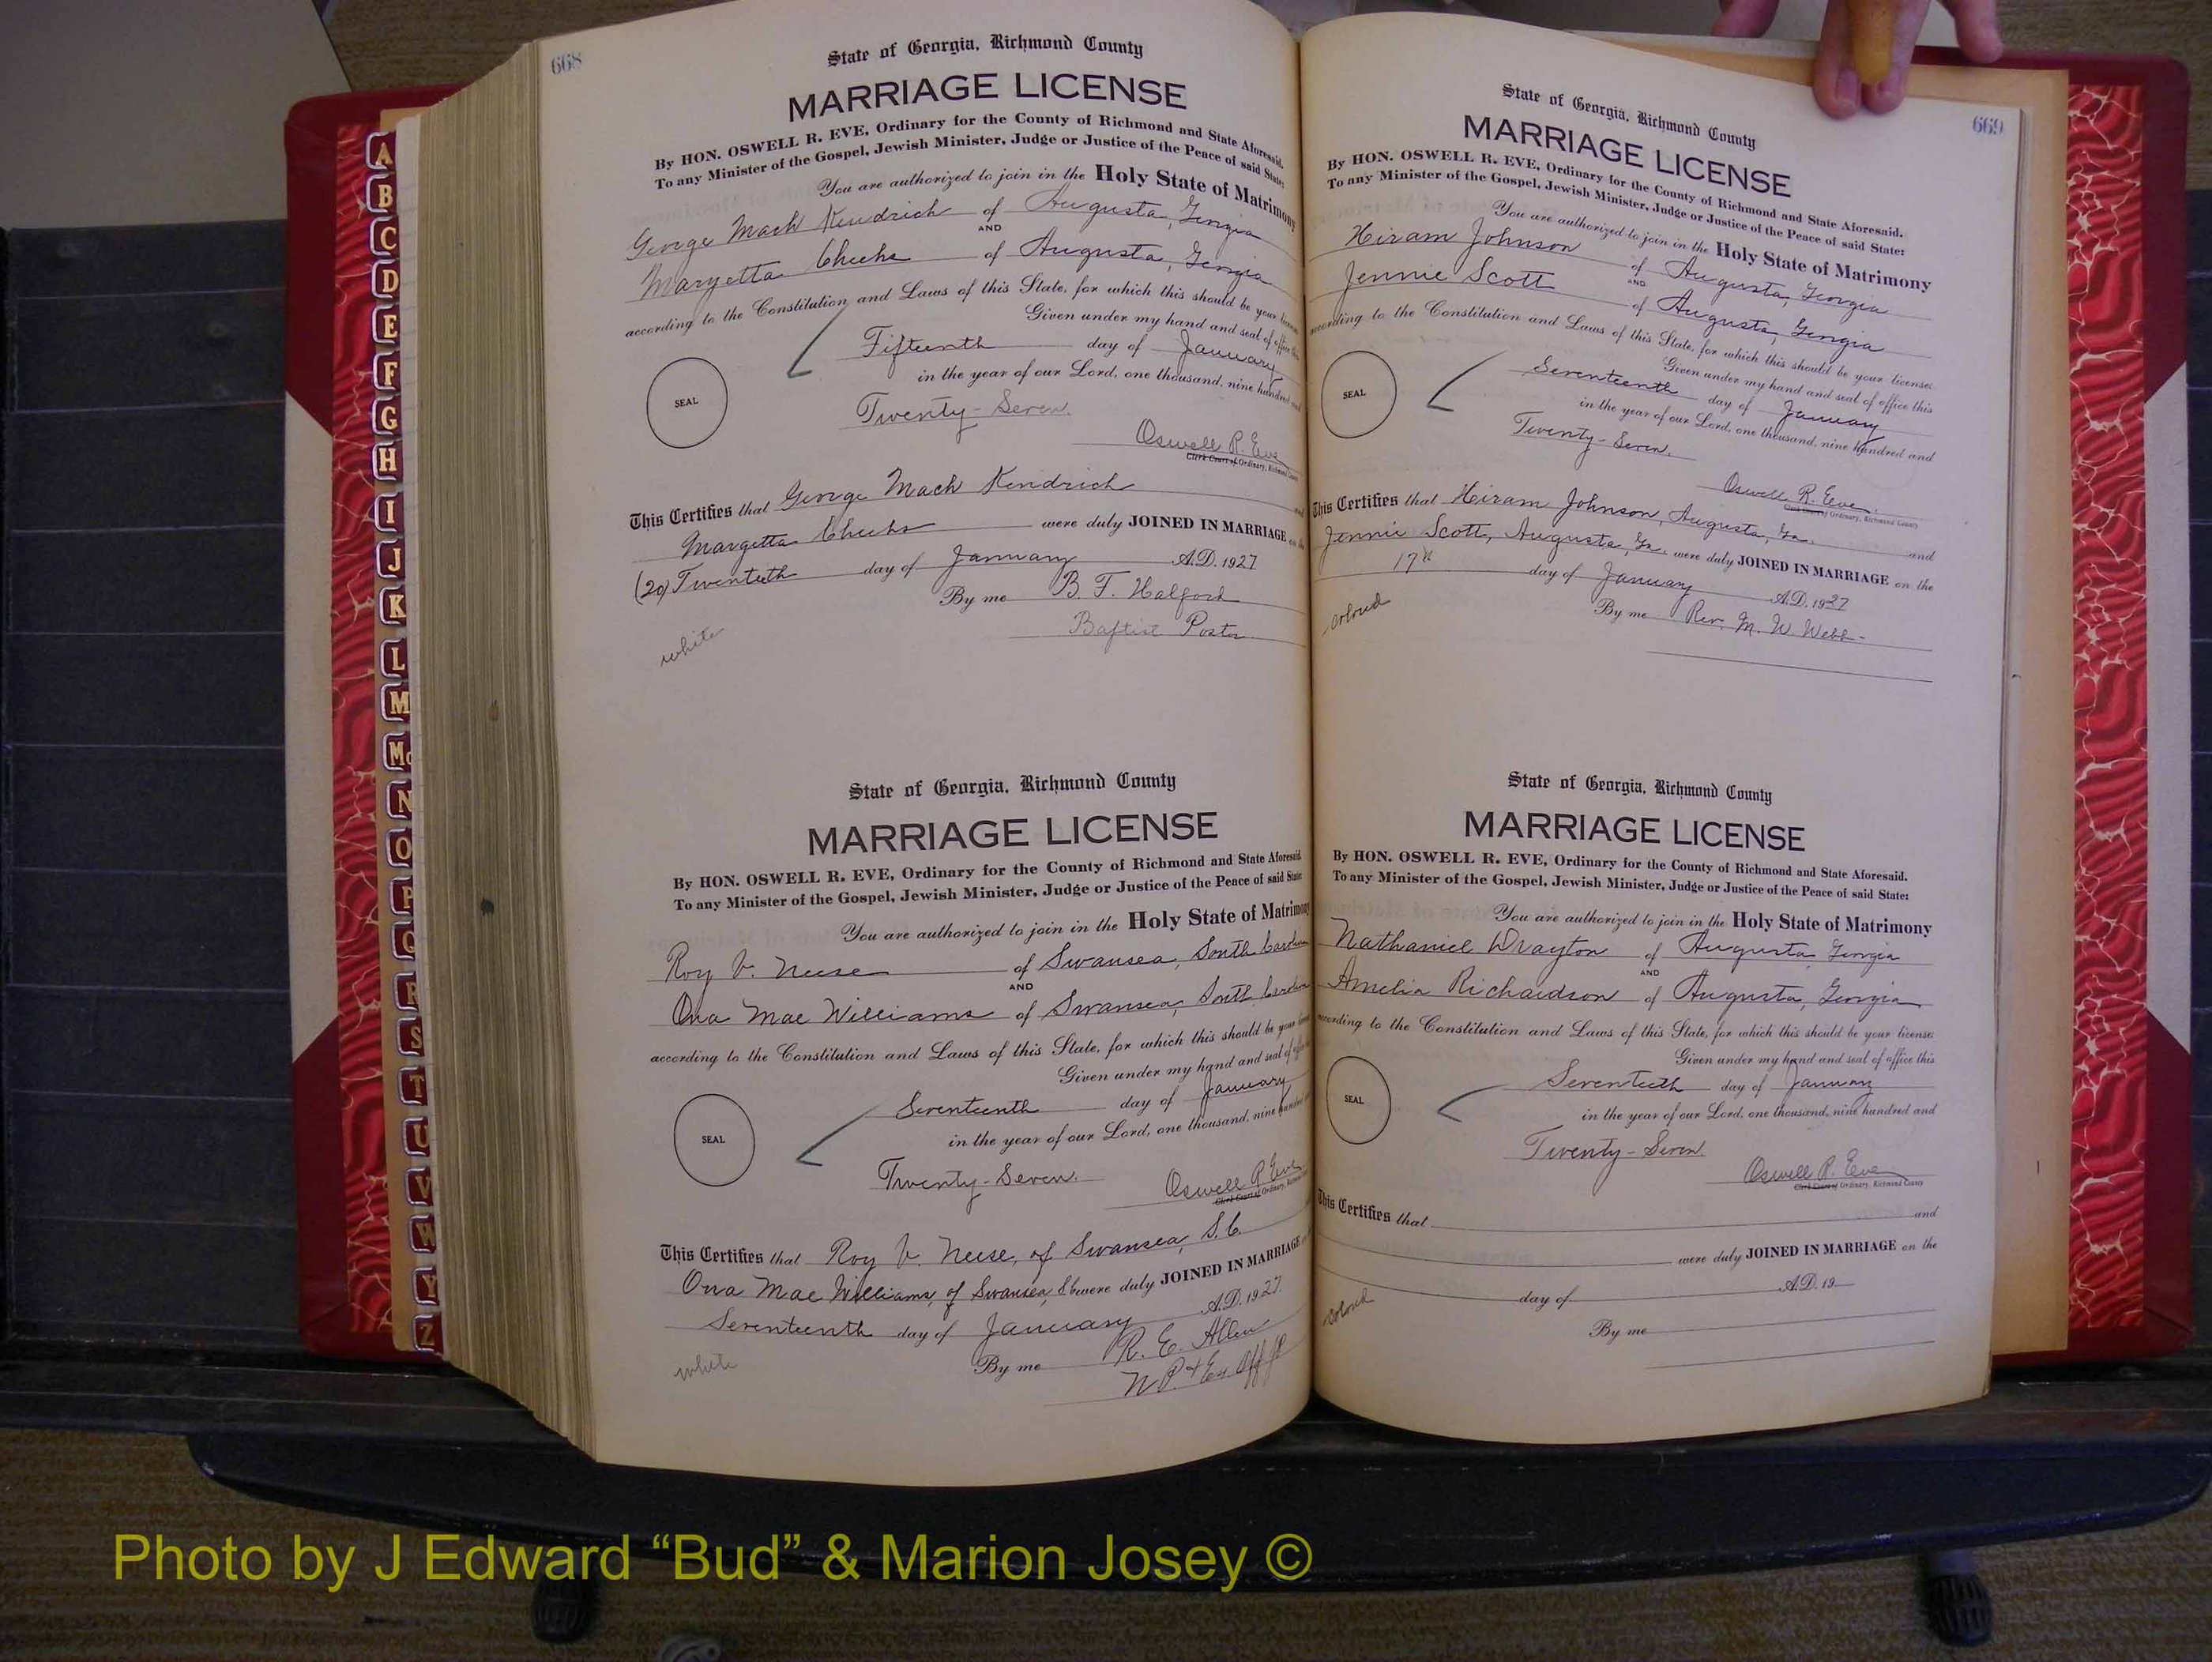 668
State of Georgia, Richmond County
MARRIAGE LICENSE
By HON. OSWELL R. EVE, Ordinary for the County of Richmond and State Aforesaid.
To any Minister of the Gospel, Jewish Minister, Judge or Justice of the Peace of said State:
You are authorized to join in the Holy State of Matrimony
George Mack Kendrick of Augusta, Georgia
AND
Margetta Cheeks of Augusta, Georgia
according to the Constitution and Laws of this State, for which this should be your license
Given under my hand and seal of office this
Fifteenth day of January
in the year of our Lord, one thousand, nine hundred and
SEAL
Twenty-Seven.
Oswell R. Eve
Clerk Court of Ordinary, Richmond County
This Certifies that George Mack Kendrick and
Margetta Cheeks were duly JOINED IN MARRIAGE on the
(20) Twentieth day of January A.D. 1927
By me B. F. Halford
Baptist Pastor
white
State of Georgia, Richmond County
MARRIAGE LICENSE
By HON. OSWELL R. EVE, Ordinary for the County of Richmond and State Aforesaid.
To any Minister of the Gospel, Jewish Minister, Judge or Justice of the Peace of said State:
You are authorized to join in the Holy State of Matrimony
Roy V. Neese of Swansea, South Carolina
AND
Ona Mae Williams of Swansea, South Carolina
according to the Constitution and Laws of this State, for which this should be your license
Given under my hand and seal of office
Seventeenth day of January
in the year of our Lord, one thousand, nine hundred
SEAL
Twenty-Seven.
Oswell R Eve
Clerk Court of Ordinary, Richmond
This Certifies that Roy V. Neese, of Swansea, S.C.
Ona Mae Williams, of Swansea, S.C. were duly JOINED IN MARRIAGE
Seventeenth day of January A.D. 1927.
By me R. E. Allen
N P. & Ex Off J P
white
669
State of Georgia, Richmond County
MARRIAGE LICENSE
By HON. OSWELL R. EVE, Ordinary for the County of Richmond and State Aforesaid.
To any Minister of the Gospel, Jewish Minister, Judge or Justice of the Peace of said State:
You are authorized to join in the Holy State of Matrimony
Hiram Johnson of Augusta, Georgia
AND
Jennie Scott of Augusta, Georgia
according to the Constitution and Laws of this State, for which this should be your license:
Given under my hand and seal of office this
Seventeenth day of January
in the year of our Lord, one thousand, nine hundred and
SEAL
Twenty-Seven.
Oswell R. Eve.
Clerk Court of Ordinary, Richmond County
This Certifies that Hiram Johnson, Augusta, Ga. and
Jennie Scott, Augusta, Ga. were duly JOINED IN MARRIAGE on the
17th day of January A.D. 1927
By me Rev. M. W. Webb
colored
State of Georgia, Richmond County
MARRIAGE LICENSE
By HON. OSWELL R. EVE, Ordinary for the County of Richmond and State Aforesaid.
To any Minister of the Gospel, Jewish Minister, Judge or Justice of the Peace of said State:
You are authorized to join in the Holy State of Matrimony
Nathaniel Drayton of Augusta, Georgia
AND
Amelia Richardson of Augusta, Georgia
according to the Constitution and Laws of this State, for which this should be your license:
Given under my hand and seal of office this
Seventeeth day of January
in the year of our Lord, one thousand, nine hundred and
SEAL
Twenty-Seven
Oswell R. Eve
Clerk Court of Ordinary, Richmond County
This Certifies that and
were duly JOINED IN MARRIAGE on the
day of A.D. 19
By me
colored
A
B
C
D
E
F
G
H
I
J
K
L
M
Mc
N
O
P
Q
R
S
T
U
V
W
Y
Z
Photo by J Edward “Bud” & Marion Josey ©